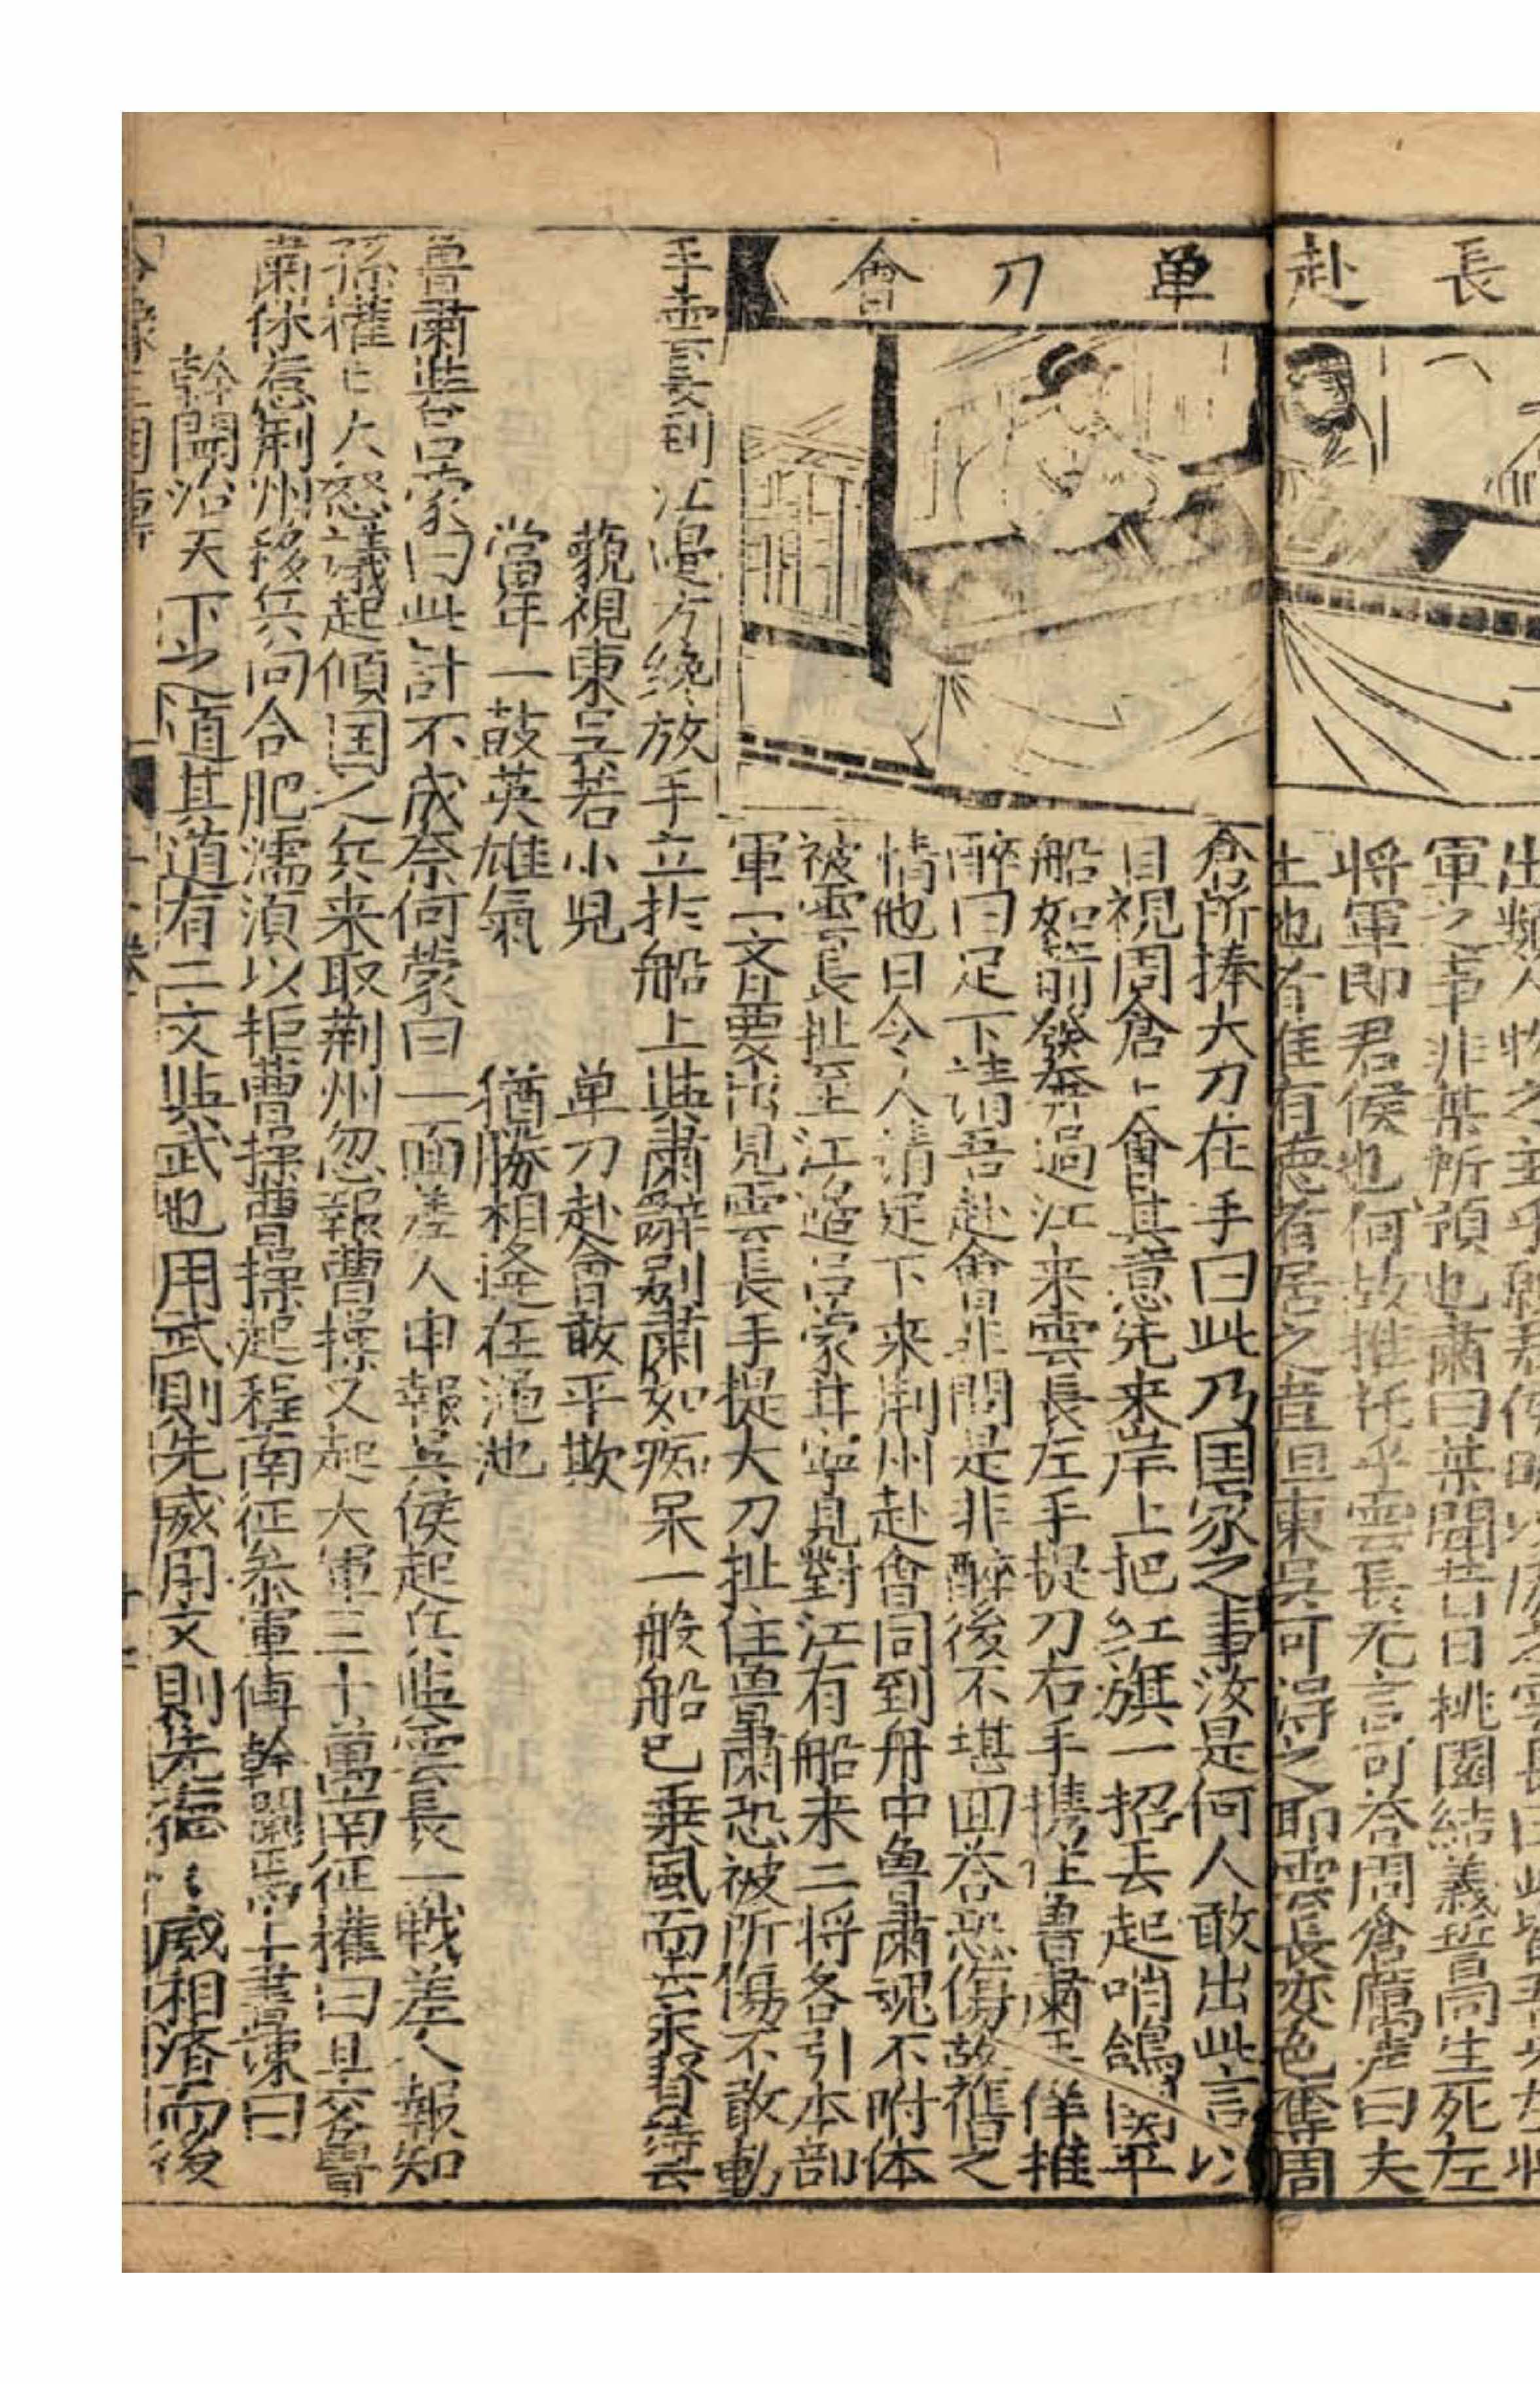 長赴单刀會
出類人物之
軍之事非某所預也肅曰某聞昔日桃園結義誓同生死左
将軍即君侯也何故推托乎雲長无言可答周倉厲声曰夫
土地者惟有德者居之豈但東吳可得之耶雲長亦色奪周
倉所捧大刀在手曰此乃国家之事汝是何人敢出此言以
目視周倉上會其意先来岸上把红旗一招去起哨鴿関平
船如箭發奔過江来雲長左手提刀右手携住魯肅手佯推
醉曰足下請吾赴會非問是非醉後不堪回答恐傷故舊之
情他日令人請足下来荆州赴會同到舟中魯肅魂不咐体
被雲長扯至江邉吕蒙甘寧見對江有船来二将各引本部
軍一齐要出見雲長手提大刀扯住魯肅恐被所傷不敢動
手雲長到江邉方纔放手立扵船上與肅辞别肅如痴呆一般船已乗風而去
藐視東吴若小児　单刀赴會敢平欺
當年一鼓英雄氣　猶勝相逢在渑池
魯肅與吕蒙曰此計不成奈何蒙曰一面差人申報吳侯起兵與雲長一戦差人報知
孫權曰大怒議起傾国之兵来取荆州忽報曹操又起大軍三十萬南征權曰且交魯
肅休惹荆州移兵向合肥濡湏以拒曹操曹操起程南征参軍傅幹上書諫曰
幹聞治天下之道其道有二文與武也用武則先威用文則先德〻威相济而後